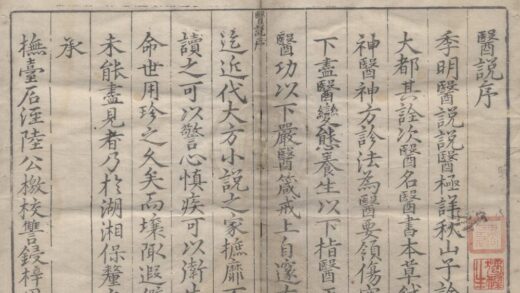 醫説序
季明醫説説醫極詳秋山子論
大都其詮次醫名醫書本草經
神醫神方診法為醫要領傷寒
下盡醫變態養生以下指醫
醫功以下嚴醫箴戒上自邃古
醫説序
迄近代大方小説之家摭靡不
讀之可以警心慎疾可以衛生
命世用珍之久矣而壤陬遐
未能盡見者乃於湖湘保釐
承
撫臺石涇陸公檄校讐鋟梓